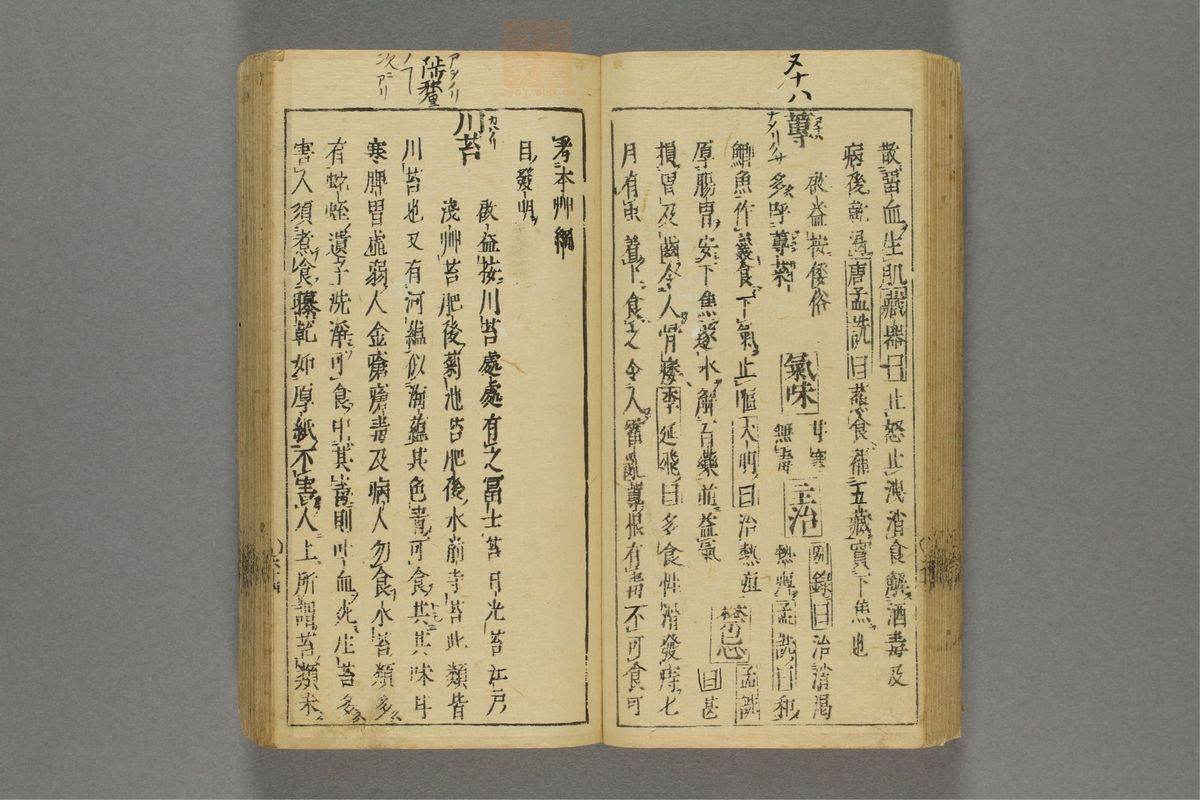 散留血生肌藏器曰止怒止洩消食解酒毒及
病後乾渇唐孟詵曰蒸食補五藏實下焦也
又十八
蓴
ナメリグサ
啟益按倭俗
多呼蓴菜
氣味
甘寒
無毒
主治
別錄曰治消渴
熱痺孟詵曰和
鯽魚作羹食下氣止嘔大明曰治熱疸
厚腸胃安下焦逐水解百藥並益氣
禁忌
孟詵
曰甚
損胃及齒令人骨痿李廷飛曰多食性滑發痔七
月有虫着上食之令人霍亂蓴根有毒不可食可
考本艸綱
目發明
川苔
啟益按川苔處處有之冨士苔日光苔江戸
淺艸苔肥後菊池苔肥後水前寺苔此類皆
川苔也又有河蘊似海蘊其色青可食其味甘
寒脾胃虛弱人金瘡瘡毒及病人勿食水苔類多
有蛇蛭遺子洗淨可食中其毒則吐血死生苔多
害人須煮食曝乾如厚紙不害人上所謂苔類未
陟釐
アヲノリ
次ニアリ